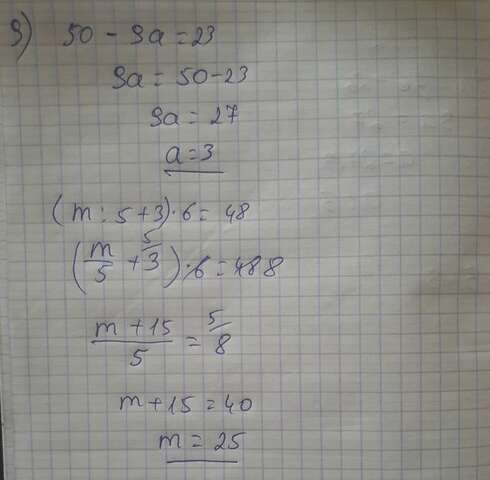 9) 50 - 9a = 23
9a = 50 - 23
9a = 27
a = 3
(m : 5 + 3) · 6 = 48
(m/5 + 3 5/) · 6 = 48 8
(m + 15)/5 = 8 5/
m + 15 = 40
m = 25